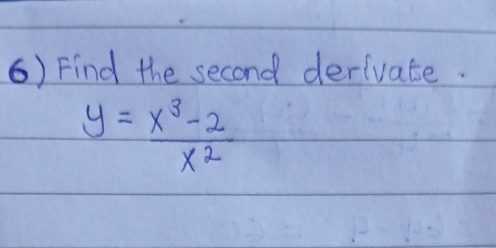 6) Find the second derivate.
y = x³-2
x²